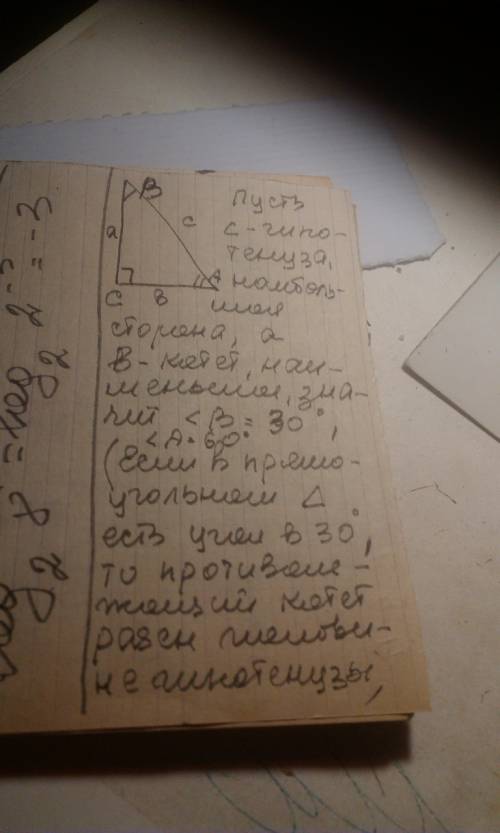 B
a
c
A
C
в
Пусть
c-гипо-
тенуза,
наиболь-
шая
сторона, а
в-катет, наи-
меньший, зна-
чит <B=30°,
<A=60°
(Если в прямо-
угольном △
есть угол в 30°,
то противоле-
жащий катет
равен полови-
не гипотенузы,
2 8 =
2 2⁻³ = -3